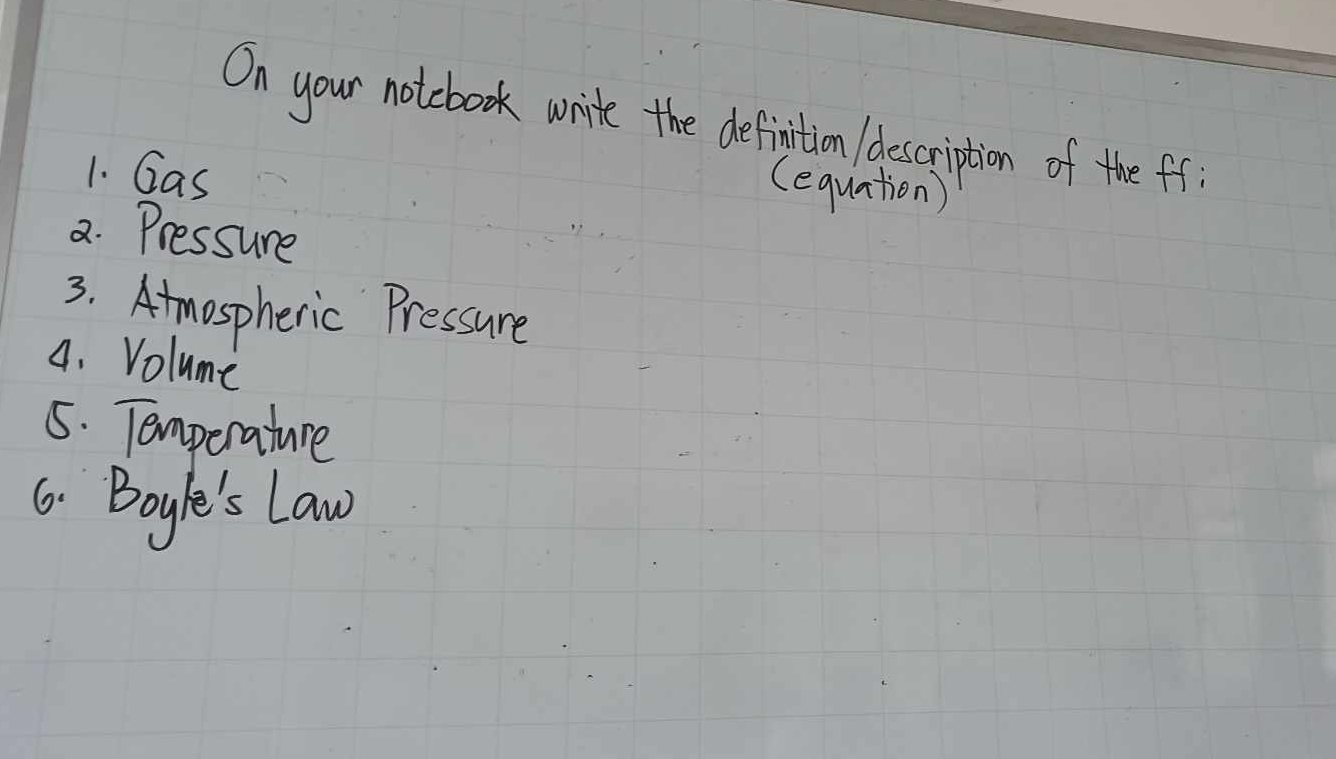 On your notebook write the definition/description of the ff:
(equation)
1. Gas
2. Pressure
3. Atmospheric Pressure
4. Volume
5. Temperature
6. Boyle's Law